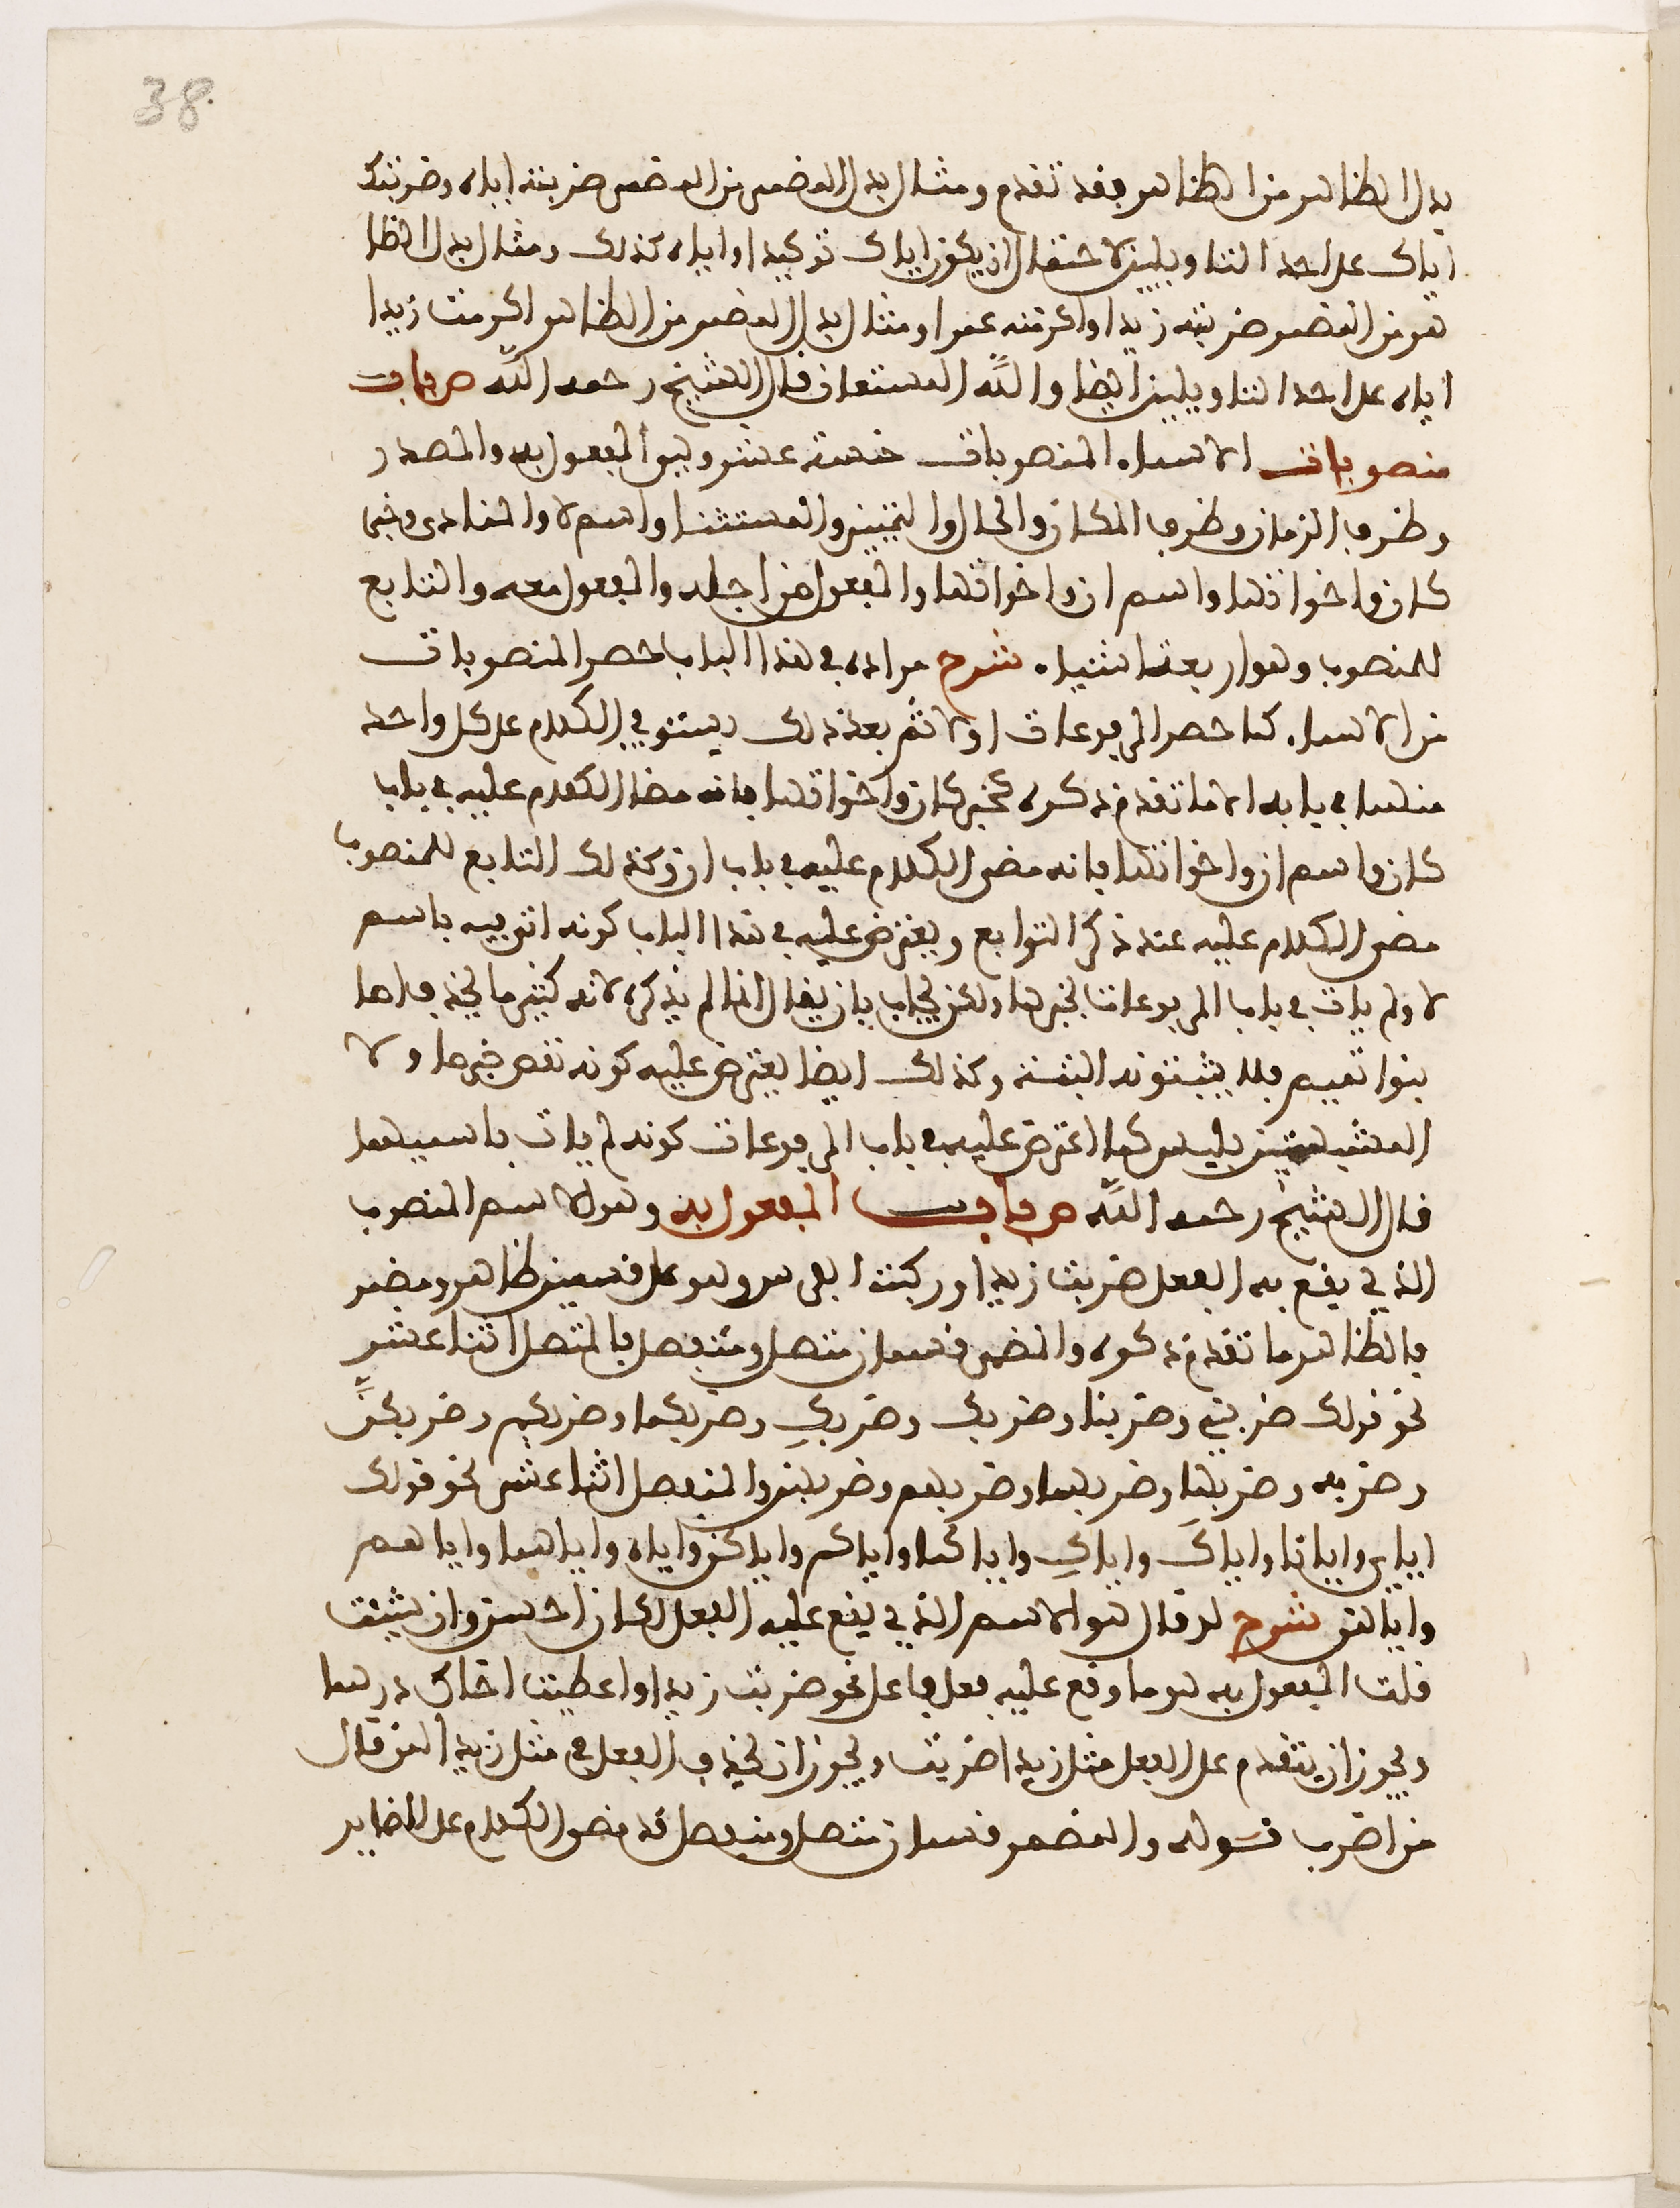 38.
بدل الظاهر من الظاهر فقد تقدم ومثال بدل المضمر من المضمر ضربته اياه وضربتك
اياك على احد التاويلين لاحتمال ان يكون اياك توكيدا واياه كذلك ومثال بدل الظا
هر من المضمر ضربته زيدا واكرمته عمرا ومثال بدل المضمر من الظاهر اكرمت زيدا
اياه على احد التاويلين ايضا والله المستعان قال الشيخ رحمه الله ص باب
منصوبات الاسماء المنصوبات خمسة عشر وهو المفعول به والمصدر
وظرف الزمان وظرف المكان والحال والتمييز والمستثنا واسم لا والمنادى وخبر
كان واخواتها واسم ان واخواتها والمفعول من اجله والمفعول معه والتابع
للمنصوب وهو اربعة اشياء شرح مراده في هذا الباب حصر المنصوبات
من الاسماء كما حصر المرفوعات اولا ثم بعد ذلك يستوفي الكلام على كل واحد
منها في بابه الا ما تقدم ذكره كخبر كان واخواتها فانه مضا الكلام عليه في باب
كان واسم ان واخواتها فانه مضى الكلام عليه في باب ان وكذلك التابع للمنصوب
مضى الكلام عليه عند ذكر التوابع ويعترض عليه في هذا الباب كونه اتى فيه باسم
لا ولم يات في باب المرفوعات بخبرها ولكن يجاب بان يقال انما لم يذكره لانه كثير ما يحذف واما
بنوا تميم فلا يثبتونه البتة وكذلك ايضا يعترض عليه كونه نقص خبر ما ولا
المشبهتين بليس كما اعترض عليه في باب المرفوعات كونه لم يات باسميهما
قال الشيخ رحمه الله ص باب المفعول به وهو الاسم المنصوب
الذي يقع به الفعل ضربت زيدا وركبت الفرس وهو على قسمين ظاهر ومضمر
فالظاهر ما تقدم ذكره والمضمر قسمان متصل ومنفصل فالمتصل اثنا عشر
نحو قولك ضربني وضربنا وضربك وضربكِ وضربكما وضربكم وضربكنَّ
وضربه وضربها وضربهما وضربهم وضربهن والمنفصل اثنا عشر نحو قولك
اياي وايانا واياكَ واياكِ واياكما واياكم واياكن واياه واياهما واياهم
واياهن شرح لو قال هو الاسم الذي يقع عليه الفعل لكان احسن وان شيت
قلت المفعول به هو ما وقع عليه فعل فاعل نحو ضربت زيدا واعطيت اخاك درهما
ويجوز ان يتقدم على الفعل مثل زيدا ضربت ويجوز ان يحذف الفعل في مثل زيدا لمن قال
من اضرب قوله والمضمر قسمان متصل ومنفصل قد مضى الكلام على الضماير